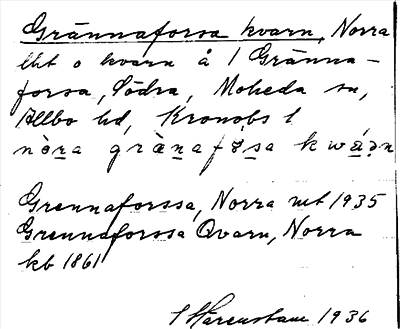 Grännaforsa kvarn, Norra
lht o kvarn å 1 Gränna-
forsa, Södra, Moheda sn,
Allbo hd, Kronobs l
nòra gränafo̱sa kwá̱ṇ
Grennaforssa, Norra mt 1935
Grennaforssa Qvarn, Norra
kb 1861
1936